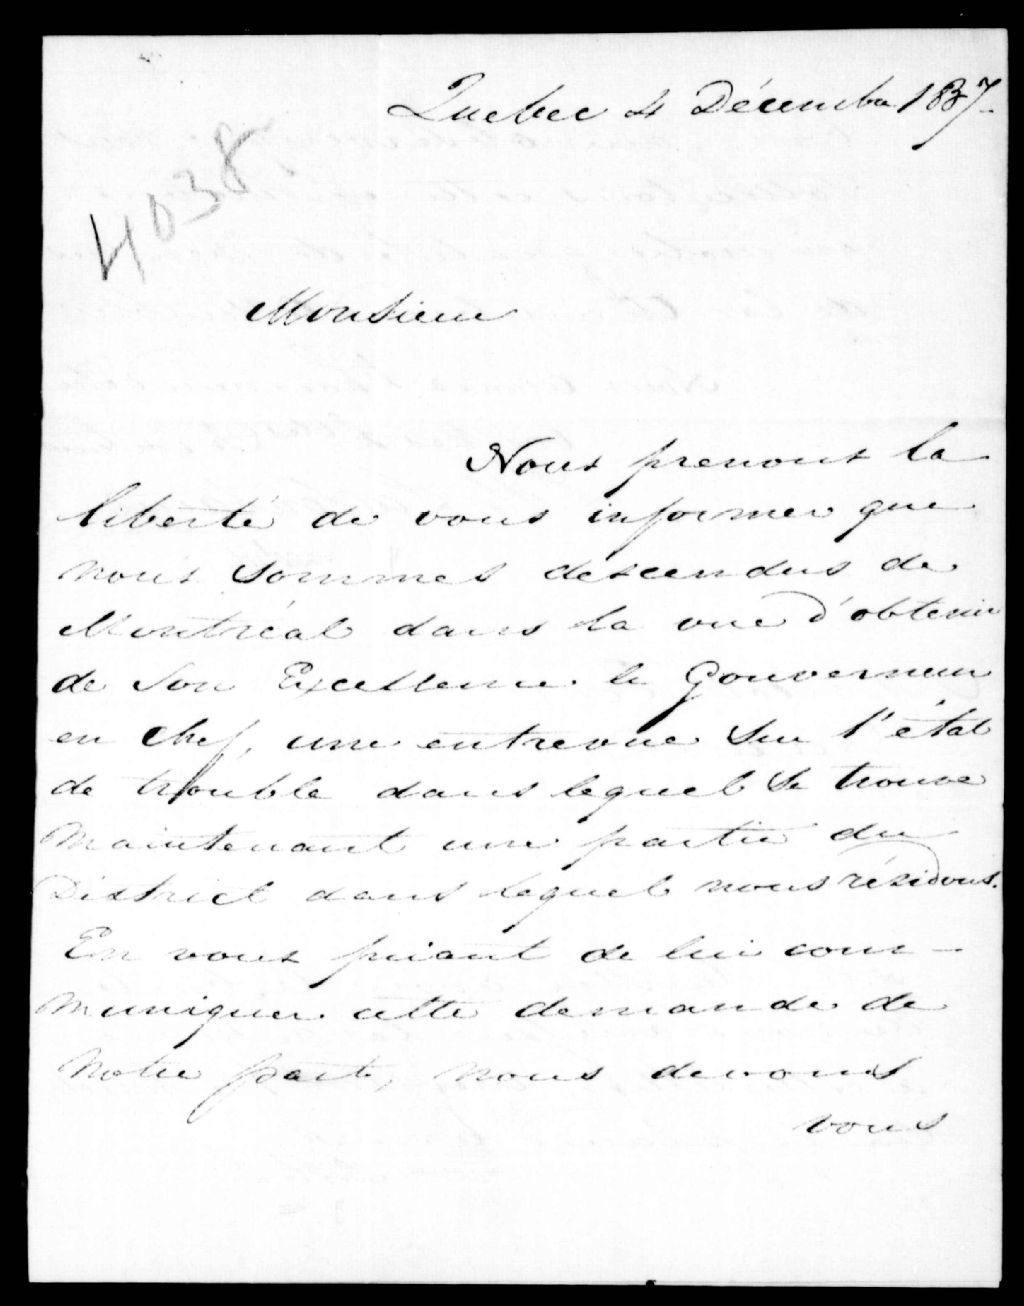 Quebec 4 Décembre 1837.
4038
Monsieur
Nous prenons la
liberté de vous informer que
nous sommes descendus de
Montréal dans la vue d'obtenir
de Son Excellence le Gouverneur
en chef, une entrevue sur l'état
de trouble dans lequel se trouve
maintenant une partie du
District dans lequel nous résidons.
En vous priant de lui com-
muniquer cette demande de
notre part, nous devons
vous